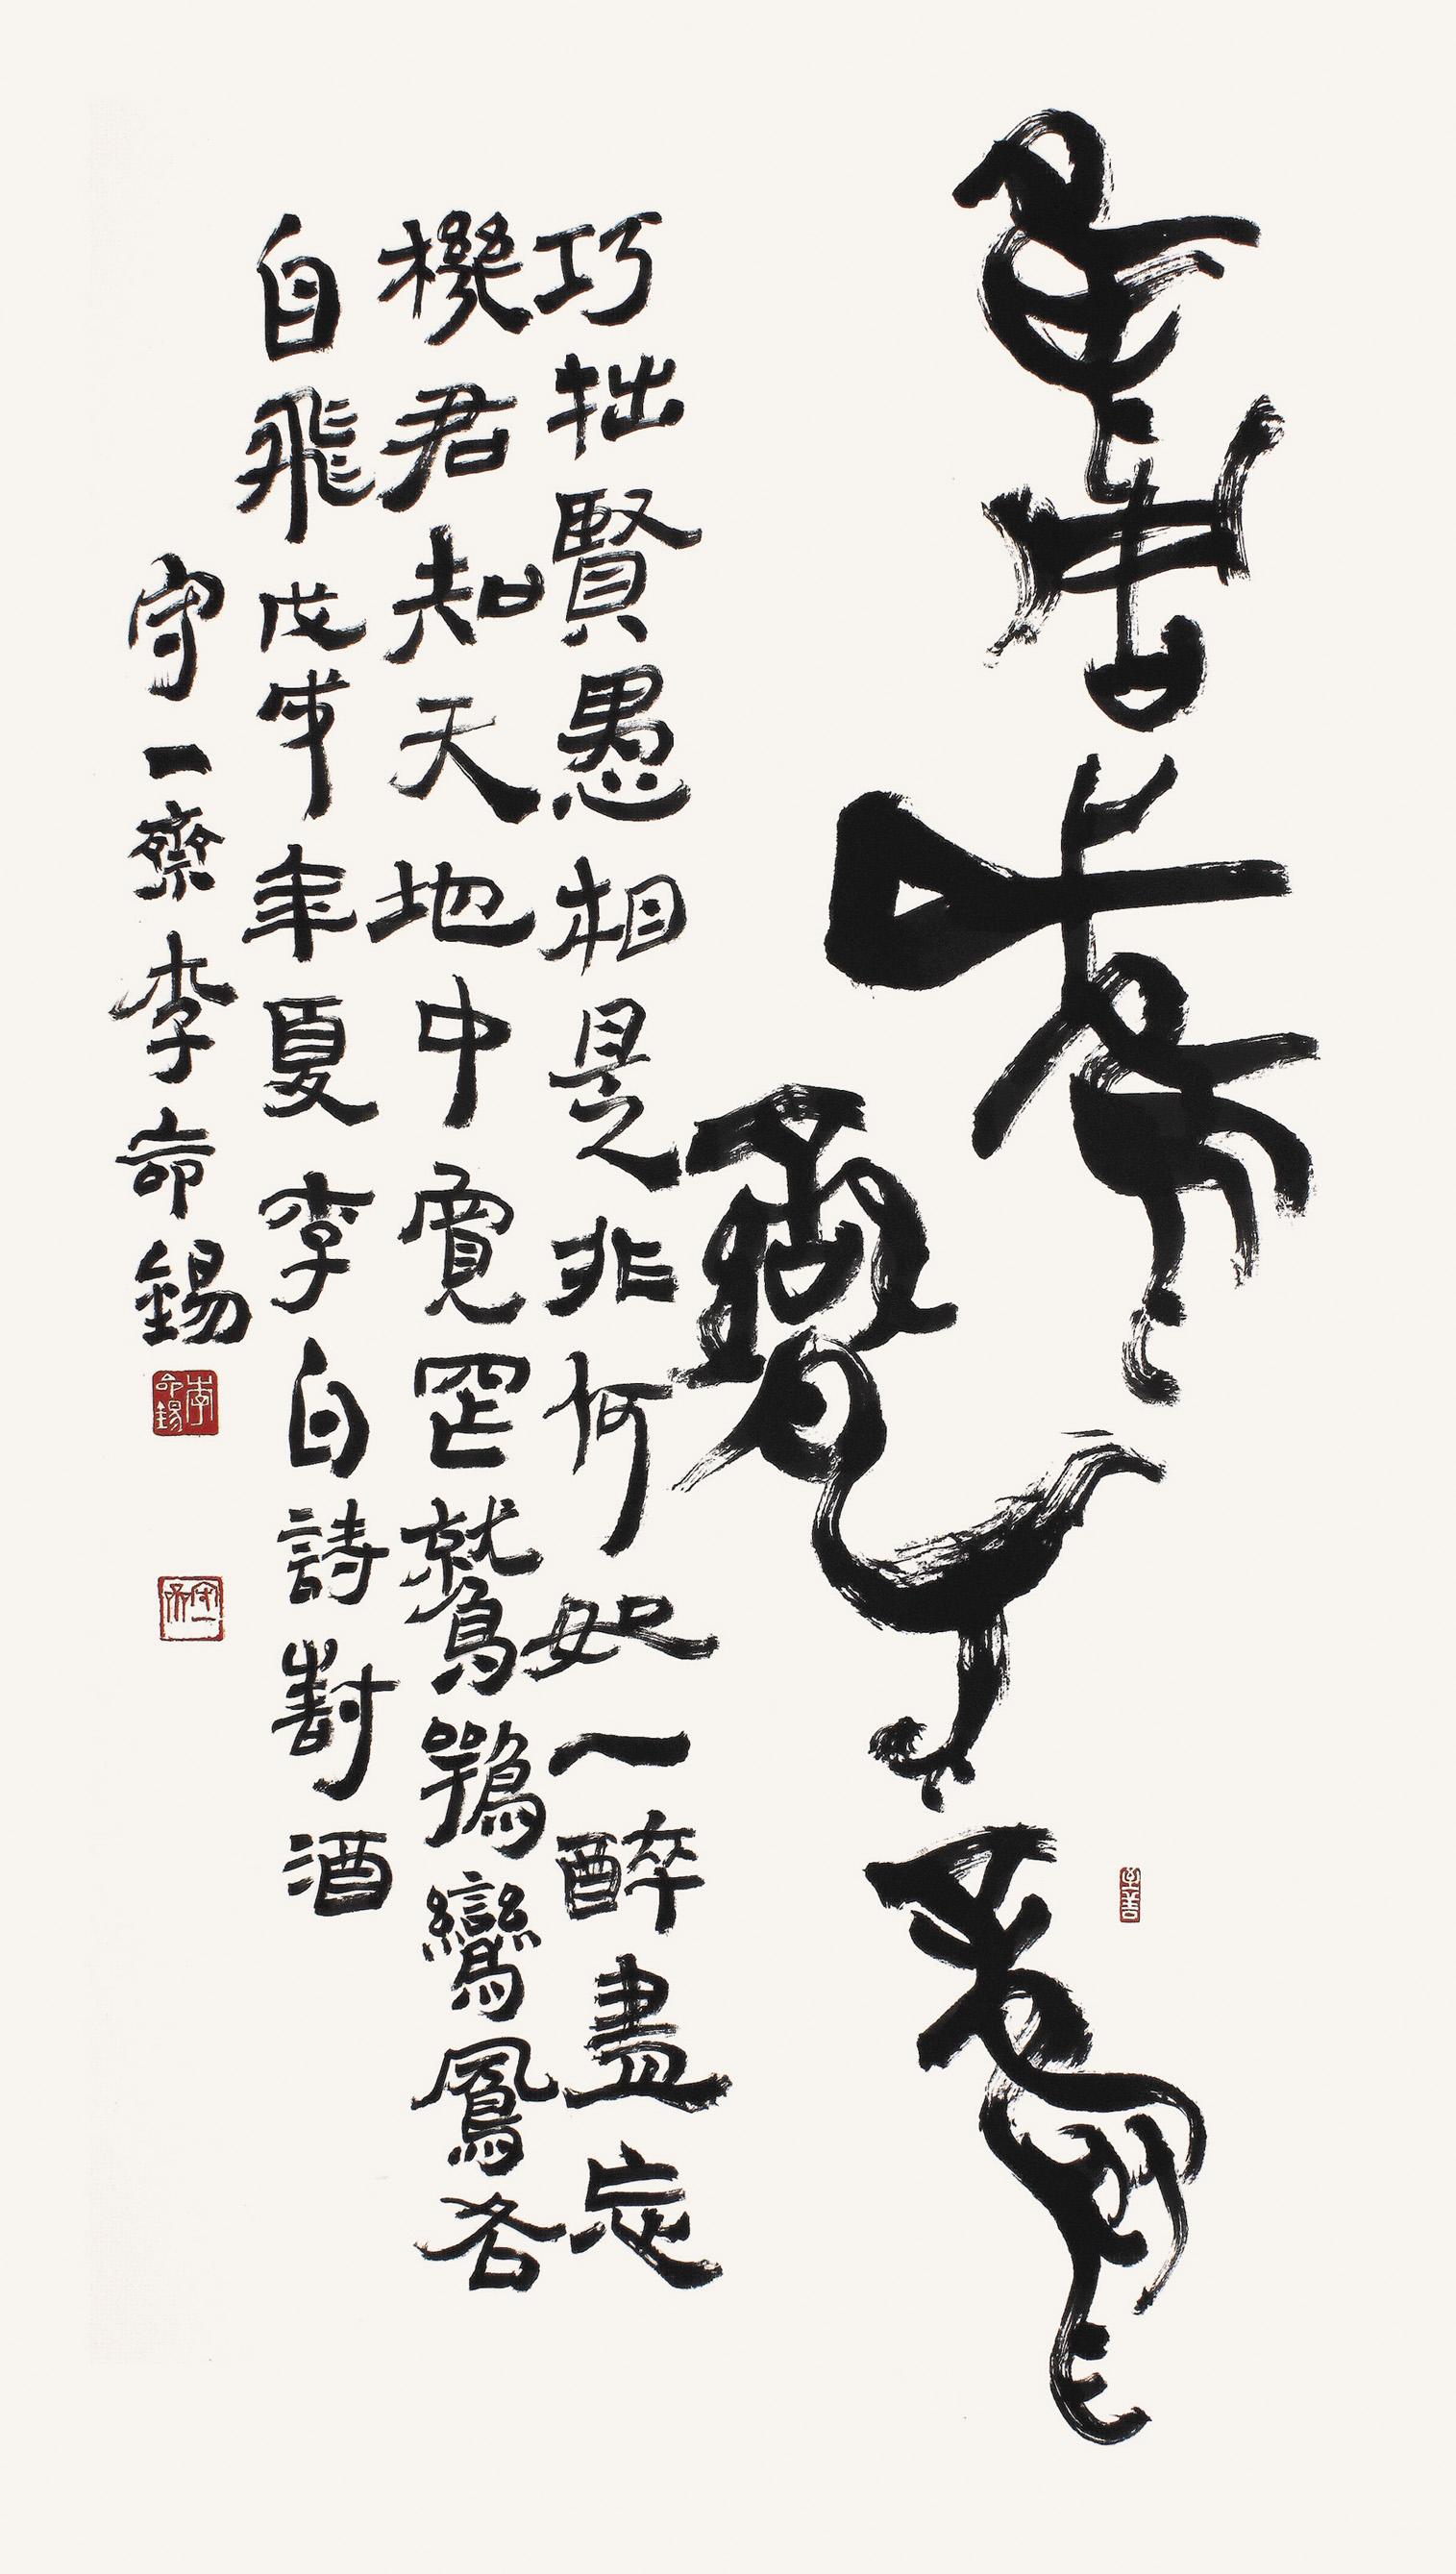 巧拙賢愚相是非何如一醉盡忘
機君知天地中寬窄鷲鶚鸞鳳各
自飛戊戌年夏李白詩對酒
守一齋李命錫
李命錫